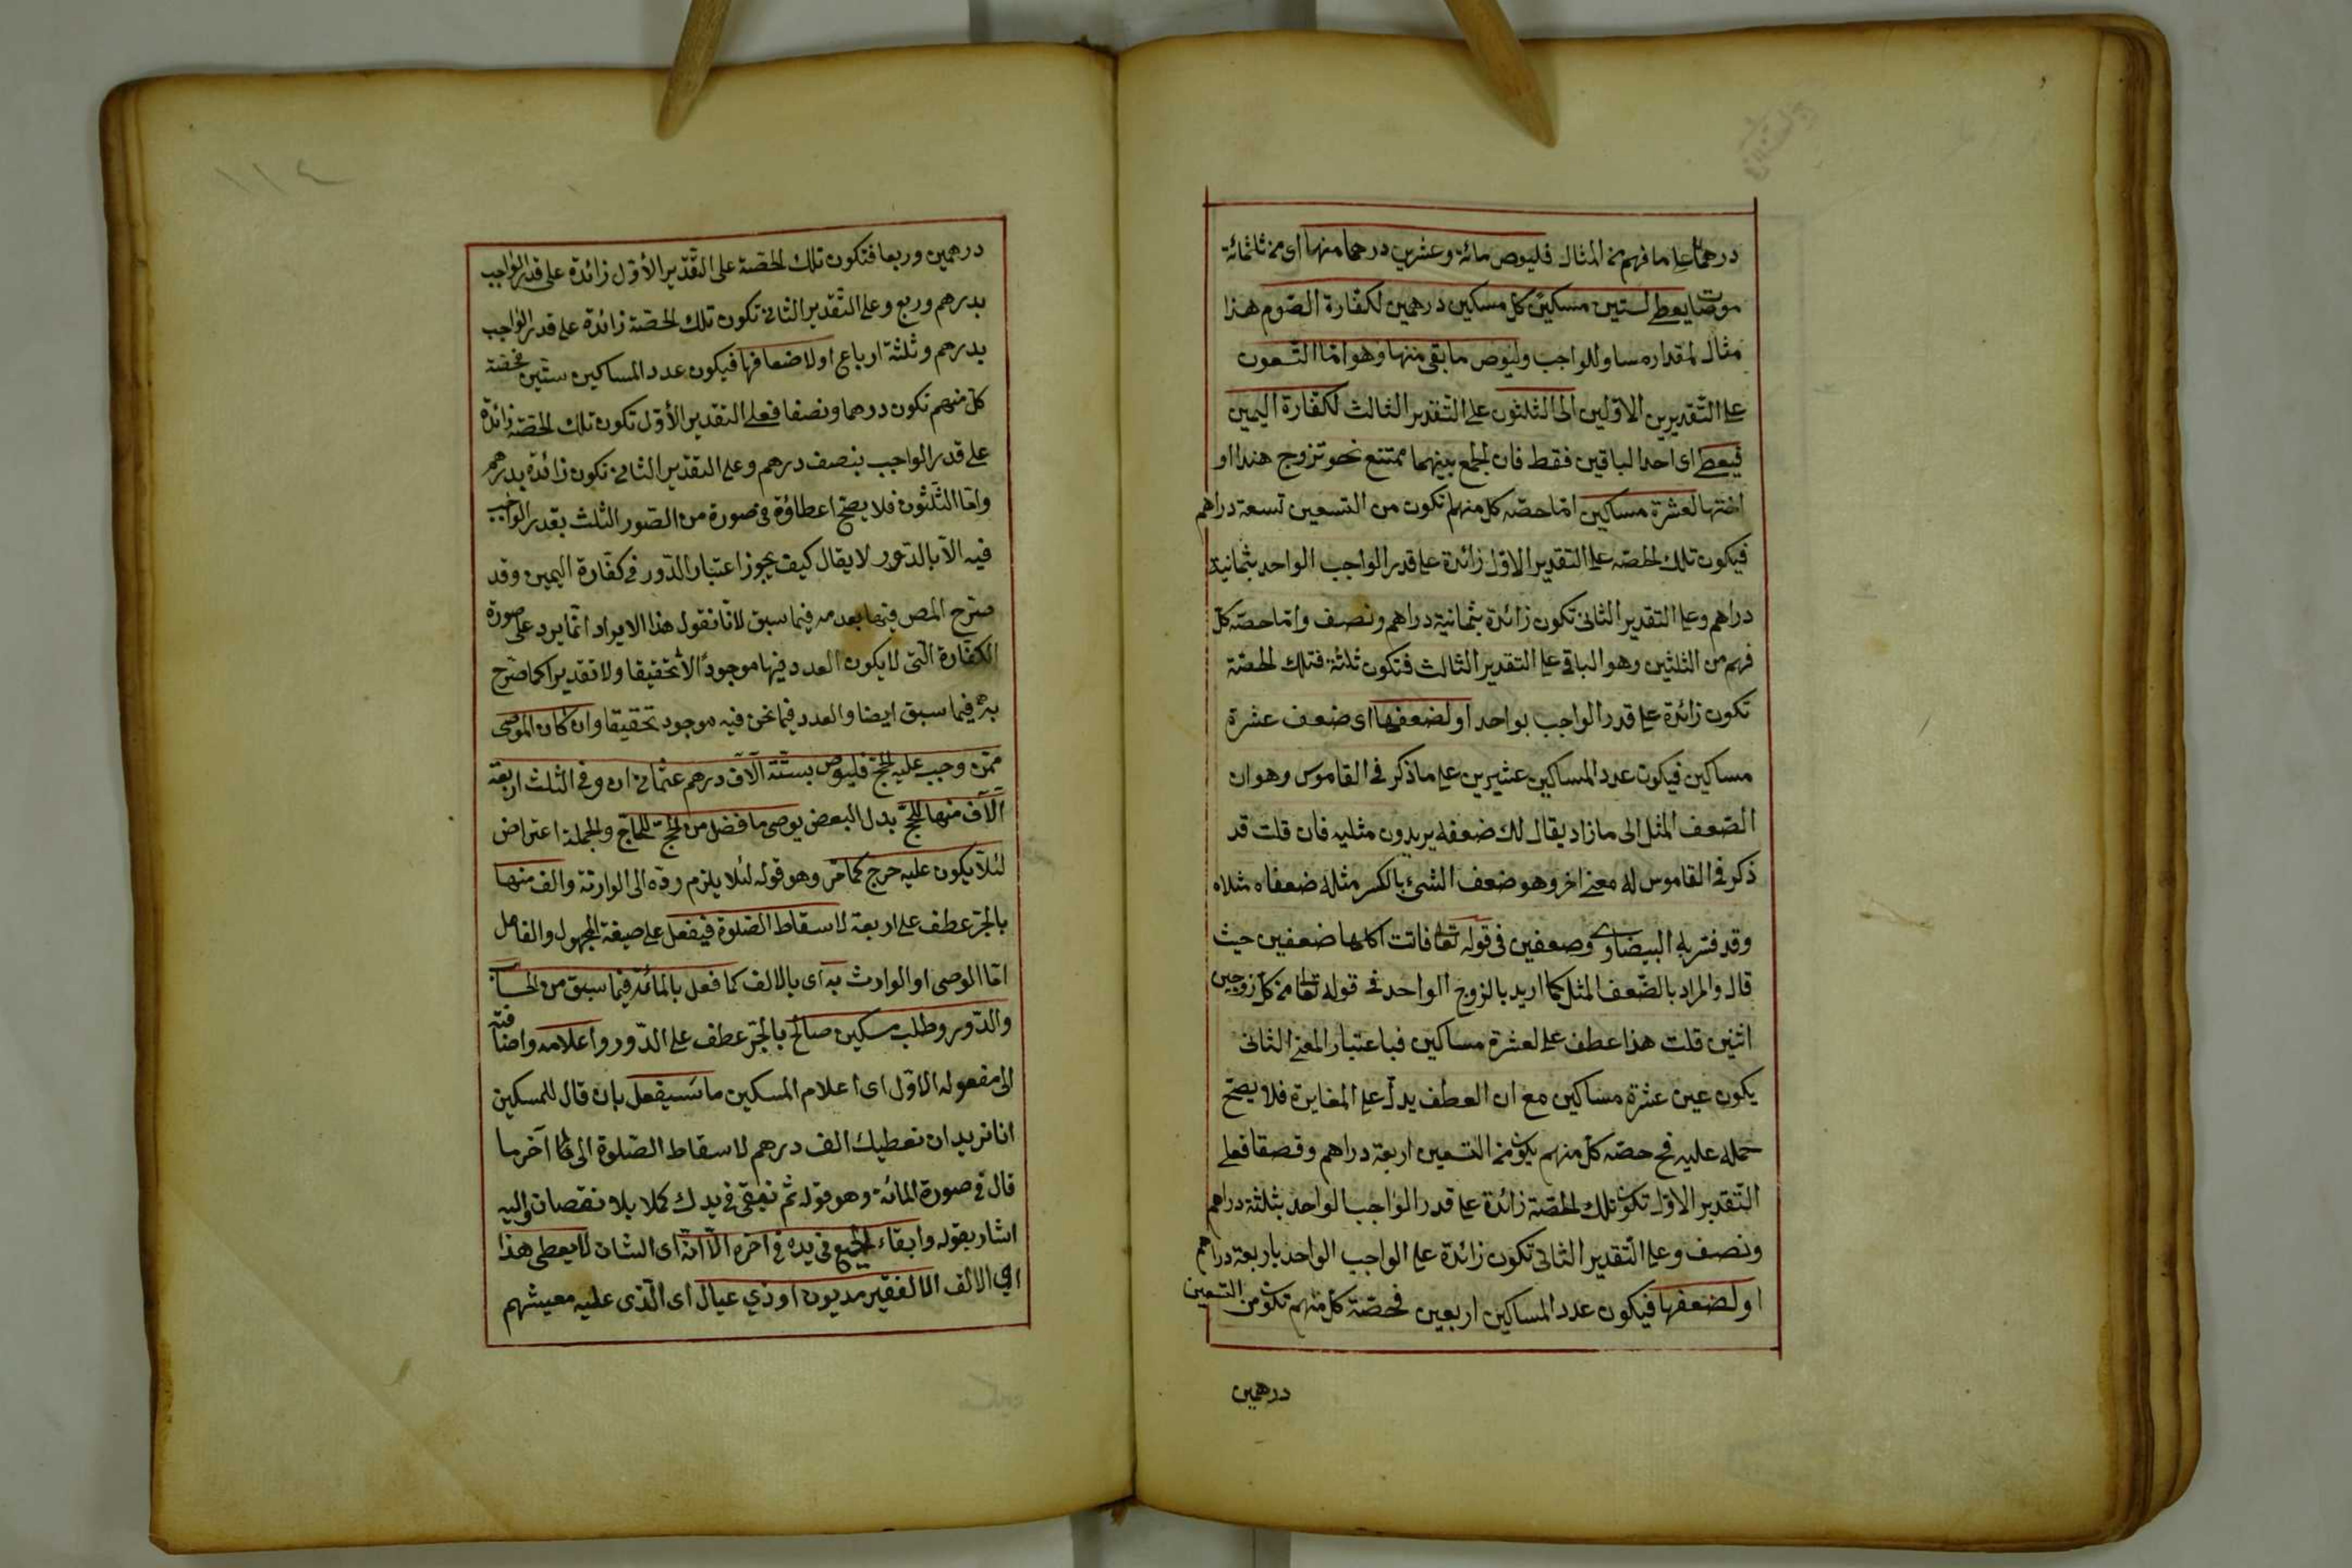 درهما على ما فهم من المثال فليوص مائة وعشرين درهما منها اى من ثلثمائة
موصا يعطى لستين مسكين كل مسكين درهمين لكفارة الصوم هذا
مثال لمقدار مساو للواجب وليوص ما بقى منها وهو اما التسعون
على التقديرين الاولين الى الثلثون على التقدير الثالث لكفارة اليمين
فيعطى اى احد الباقين فقط فان الجمع بينهما ممتنع نحو تزوج هندا او
اختها لعشرة مساكين اما حصة كل منهم تكون من التسعين تسعة دراهم
فيكون تلك الحصة على التقدير الاول زائدة على قدر الواجب الواحد بثمانية
دراهم وعلى التقدير الثانى تكون زائدة بثمانية دراهم ونصف واما حصة كل
فهم من الثلثين وهو الباقى على التقدير الثالث فتكون ثلثة فتلك الحصة
تكون زائدة على قدر الواجب بواحد او لضعفها اى ضعف عشرة
مساكين فيكون عدد المساكين عشيرين على ما ذكر فى القاموس وهو ان
الضعف المثل الى ما زاد يقال لك ضعفه يريدون مثليه فان قلت قد
ذكر فى القاموس له معنى اخر وهو ضعف الشئ بالكسر مثله ضعفاه مثلاه
وقد فسر به البيضاوى وصعفين فى قوله تعا فاتت اكلها ضعفين حيث
قال والمراد بالضعف المثل كما اريد بالزوج الواحد فى قوله تعا من كل زوجين
اثنين قلت هذا عطف على لعشرة مساكين فباعتبار المعنى الثانى
يكون عين عشرة مساكين مع ان العطف يدل على المغايرة فلا يصح
حمله عليه فح حصة كل منهم يكون من التسعين اربعة دراهم وفصقا فعلى
التقدير الاول تكون تلك الحصة زائدة على قدر الواجب الواحد بثلثة دراهم
ونصف وعلى التقدير الثانى تكون زائدة على الواجب الواحد باربعة دراهم
او لضعفها فيكون عدد المساكين اربعين فحصة كل منهم تكون من التسعين
درهمين
١١٤
درهمين وربعا فتكون تلك الحصة على التقدير الأول زائدة على قدر الواجب
بدرهم وربع وعلى التقدير الثانى تكون تلك الحصة زائدة على قدر الواجب
بدرهم وثلثة ارباع او لاضعافها فيكون عدد المساكين ستين فحصة
كل منهم تكون درهما ونصفا فعلى التقدير الأول تكون تلك الحصة زائدة
على قدر الواجب بنصف درهم وعلى التقدير الثانى تكون زائدة بدرهم
واما الثلثون فلا يصح اعطاؤه فى صورة من الصور الثلث بقدر الواجب
فيه الا بالدور لا يقال كيف يجوز اعتبار الدور فى كفارة اليمين وقد
صرح المص فيها بعدمه فيما سبق لانا نقول هذا الايراد انما يرد على صورة
الكفارة التى لا يكون العدد فيها موجودا لا تحقيقا ولا تقديرا كما صرح
به فيما سبق ايضا والعدد فيما نحن فيه موجود تحقيقا وان كان الموصى
ممن وجب عليه الحج فليوص بستة آلاف درهم عثمانى ان وفى الثلث اربعة
آلاف منها للحج بدل البعض يوصى ما فضل من الحج للحاج والجملة اعتراض
لئلا يكون عليه حرج كما مر وهو قوله لئلا يلزم رده الى الوارثة والف منها
بالجر عطف على اربعة لاسقاط الصلوة فيفعل على صيغة المجهول والفاعل
اما الموصى او الوارث به اى بالالف كما فعل بالمائة فيما سبق من الحساب
والدور وطلب مسكين صالح بالجر عطف على الدور واعلامه واضافته
الى مفعوله الاول اى اعلام المسكين ما سيفعل بان قال للمسكين
انا نريد ان نعطيك الف درهم لاسقاط الصلوة الى آخر ما
قال فى صورة المائة وهو قوله ثم نبقى فى يدك كملا بلا نقصان واليه
اشار بقوله وابقاء الجميع فى يده فى اخره الا انه اى الشان لا يعطى هذا
اي الالف الا لفقير مديون او ذي عيال اى الذى عليه معيشهم